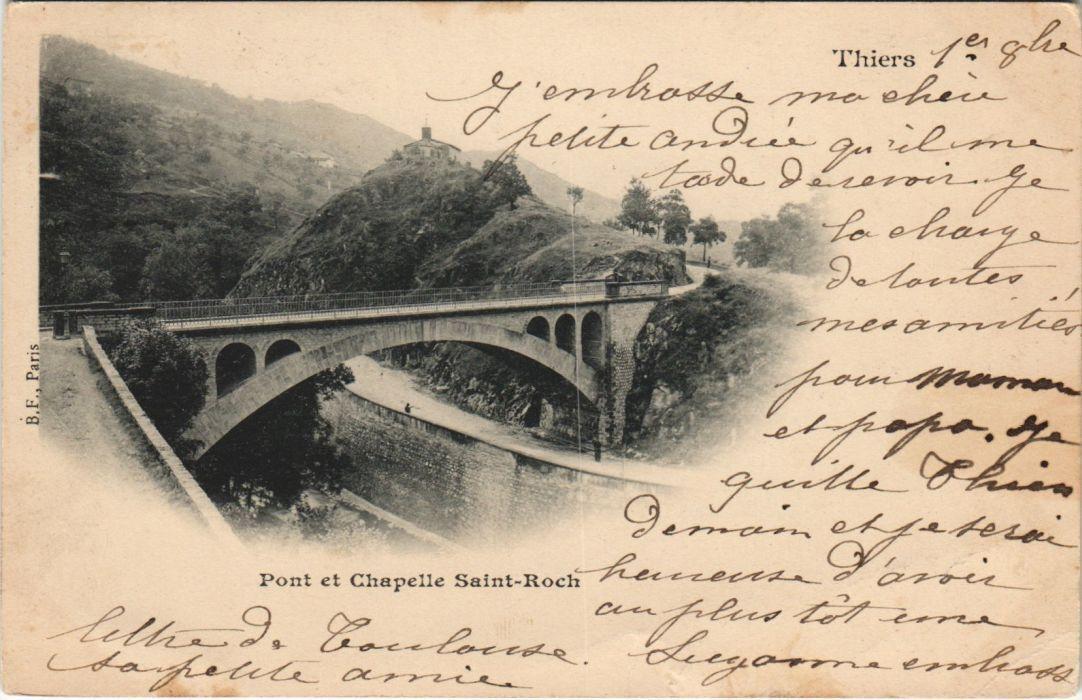 Thiers 1er 8bre
J'embrasse ma chère
petite andrée qu'il me
tarde de revoir. Je
la charge
de toutes
mes amitiés
pour Maman
et papa. Je
quitte Thiers
demain et je serai
heureuse d'avoir
au plus tôt une
lettre de Toulouse. Suzanne embrasse
sa petite amie.
Pont et Chapelle Saint-Roch
B.F., Paris